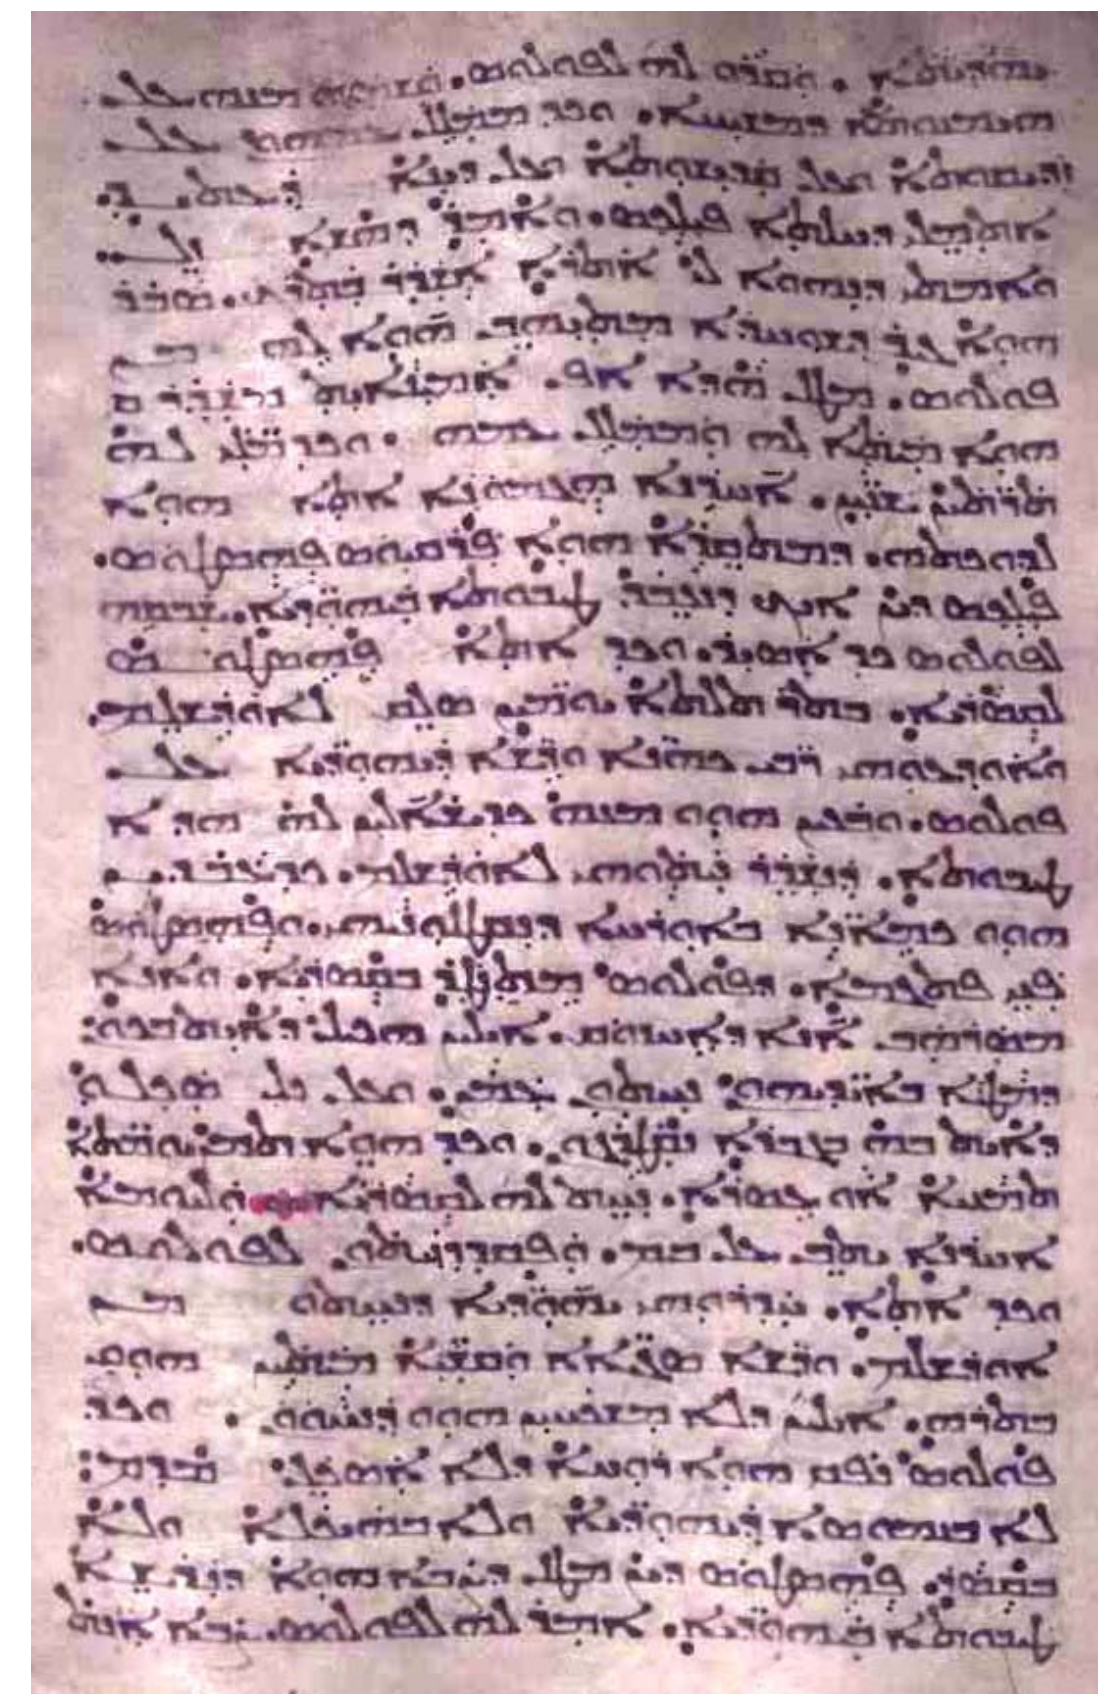 ܝܗܘܕܝܬܐ. ܘܩܪܘ ܠܗ ܠܦܘܠܘܣ. ܘܫܡܥܘ ܡܢܗ ܥܠ
ܗܝܡܢܘܬܐ ܕܡܫܝܚܐ. ܘܟܕ ܡܡܠܠ ܥܡܗܘܢ ܥܠ
ܙܕܝܩܘܬܐ ܘܥܠ ܩܕܝܫܘܬܐ ܘܥܠ ܕܝܢܐ ܕܥܬܝܕ.
ܐܬܡܠܝ ܕܚܠܬܐ ܦܝܠܟܣ. ܘܐܡܪ ܕܗܫܐ ܙܠ.
ܘܐܡܬܝ ܕܢܗܘܐ ܠܝ ܐܬܪܐ ܐܫܕܪ ܒܬܪܟ. ܣܒܪ
ܗܘܐ ܓܝܪ ܕܫܘܚܕܐ ܡܬܝܗܒ ܗܘܐ ܠܗ ܡܢ
ܦܘܠܘܣ. ܡܛܠ ܗܕܐ ܐܦ ܐܡܝܢܐܝܬ ܡܫܕܪ
ܗܘܐ ܡܝܬܐ ܠܗ ܘܡܡܠܠ ܥܡܗ. ܘܟܕ ܡܠܝ ܠܗ
ܬܪܬܝܢ ܫܢܝܢ. ܐܚܪܢܐ ܗܓܡܘܢܐ ܐܬܐ ܗܘܐ
ܠܕܘܟܬܗ. ܕܡܬܩܪܐ ܗܘܐ ܦܪܩܝܘܣ ܦܗܣܛܘܣ.
ܦܝܠܟܣ ܕܝܢ ܐܝܟ ܕܢܥܒܕ ܛܝܒܘܬܐ ܒܝܗܘܕܝܐ. ܫܒܩܗ
ܠܦܘܠܘܣ ܟܕ ܐܣܝܪ. ܘܟܕ ܐܬܐ ܦܗܣܛܘܣ
ܠܩܣܪܝܐ. ܒܬܪ ܬܠܬܐ ܝܘܡܝܢ ܣܠܩ ܠܐܘܪܫܠܡ.
ܘܐܘܕܥܘܗܝ ܪܒܝ ܟܗܢܐ ܘܪܫܐ ܕܝܗܘܕܝܐ ܥܠ
ܦܘܠܘܣ. ܘܒܥܝܢ ܗܘܘ ܡܢܗ ܟܕ ܫܐܠܝܢ ܠܗ ܗܕܐ
ܛܝܒܘܬܐ. ܕܢܫܕܪ ܢܝܬܘܗܝ ܠܐܘܪܫܠܡ. ܟܕ ܥܒܕܝܢ
ܗܘܘ ܟܡܐܢܐ ܒܐܘܪܚܐ ܕܢܩܛܠܘܢܝܗܝ. ܘܦܗܣܛܘܣ
ܦܢܝ ܦܬܓܡܐ. ܕܦܘܠܘܣ ܡܬܢܛܪ ܒܩܣܪܝܐ. ܘܐܢܐ
ܡܣܪܗܒ ܐܢܐ ܕܐܚܙܘܩ. ܐܝܠܝܢ ܗܟܝܠ ܕܐܝܬ ܒܟܘܢ
ܕܡܛܝܐ ܒܐܝܕܝܗܘܢ ܢܚܬܘܢ ܥܡܢ. ܘܥܠ ܟܠ ܣܟܠܘ
ܕܐܝܬ ܒܗ ܒܓܒܪܐ ܢܩܛܪܓܘܢ. ܘܟܕ ܗܘܐ ܬܡܢ ܝܘܡܬܐ
ܬܡܢܝܐ ܐܘ ܥܣܪܐ. ܢܚܬ ܠܗ ܠܩܣܪܝܐ ܘܠܝܘܡܐ
ܐܚܪܢܐ ܝܬܒ ܥܠ ܒܝܡ. ܘܦܩܕ ܕܢܝܬܘܢ ܠܦܘܠܘܣ.
ܘܟܕ ܐܬܐ. ܚܕܪܘܗܝ ܝܗܘܕܝܐ ܕܢܚܬܘ ܡܢ
ܐܘܪܫܠܡ. ܘܪܫܐ ܣܓܝܐܐ ܘܩܫܝܐ ܡܝܬܝܢ ܗܘܘ
ܐܝܠܝܢ ܕܠܐ ܡܫܟܚܝܢ ܗܘܘ ܕܢܚܘܘܢ. ܘܟܕ
ܦܘܠܘܣ ܢܦܩ ܗܘܐ ܪܘܚܐ ܕܠܐ ܐܣܟܠ ܡܕܡ
ܠܐ ܒܢܡܘܣܐ ܕܝܗܘܕܝܐ ܘܠܐ ܒܗܝܟܠܐ ܘܠܐ
ܒܩܣܪ. ܦܗܣܛܘܣ ܕܝܢ ܡܛܠ ܕܨܒܐ ܗܘܐ ܕܢܪܫܐ
ܛܝܒܘܬܐ ܒܝܗܘܕܝܐ. ܐܡܪ ܠܗ ܠܦܘܠܘܣ. ܨܒܐ ܐܢܬ